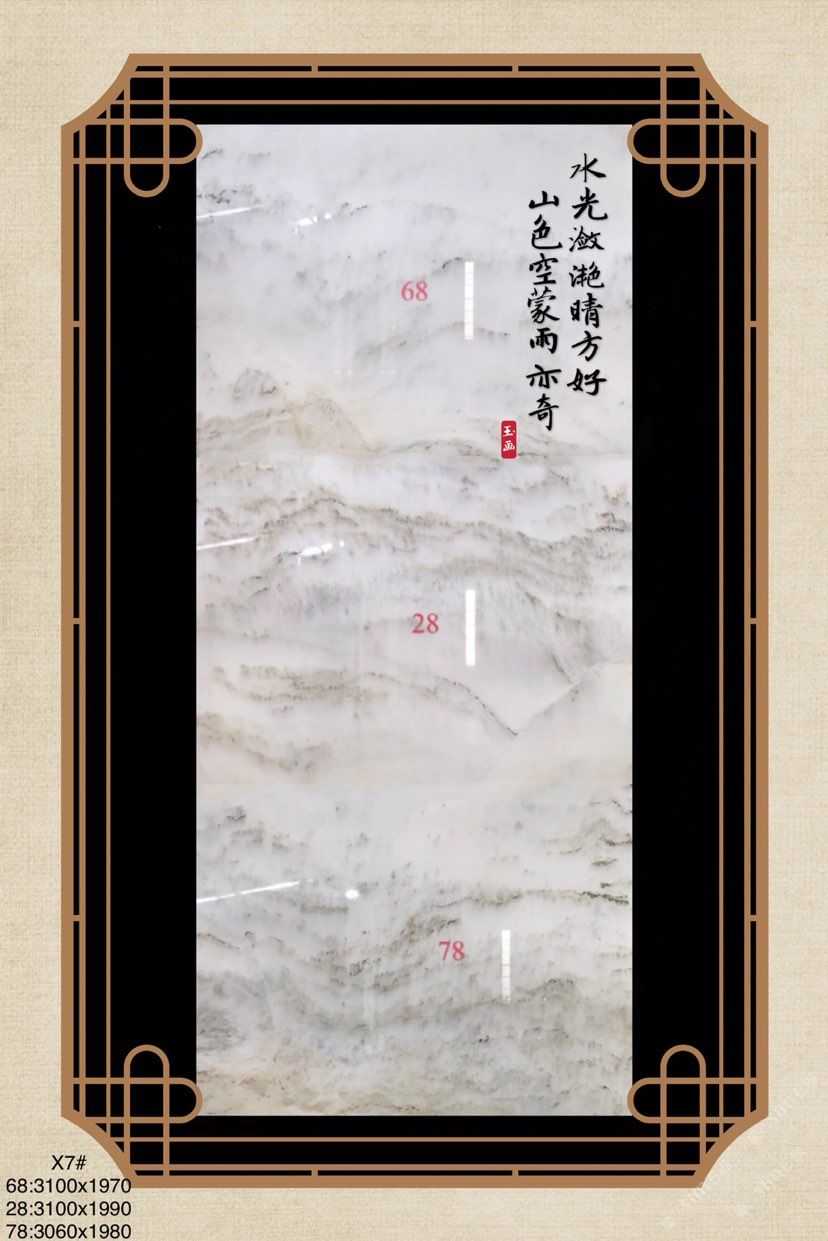 水光潋滟晴方好
山色空蒙雨亦奇
玉画
68
28
78
X7#
68:3100x1970
28:3100x1990
78:3060x1980